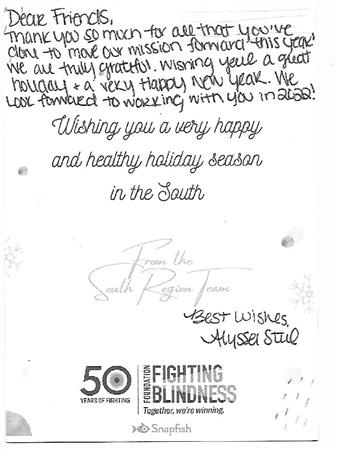 Dear Friends,
Thank you so much for all that you've
done to move our mission forward this year!
We are truly grateful. Wishing you a great
holiday + a very Happy New Year. We
look forward to working with you in 2022!
Wishing you a very happy
and healthy holiday season
in the South
From the
South Region Team
Best Wishes,
Alyssa
50
YEARS OF FIGHTING
FOUNDATION
FIGHTING
BLINDNESS
Together, we're winning.
Snapfish